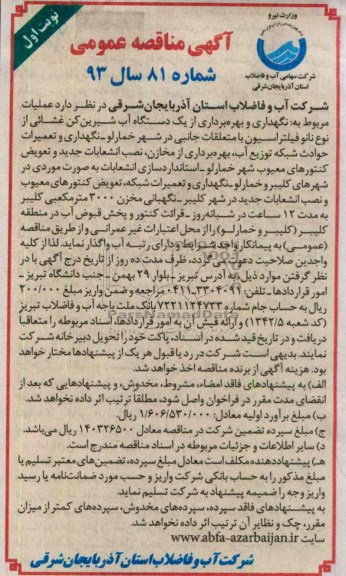 وزارت نیرو
شرکت سهامی آب و فاضلاب
استان آذربایجان شرقی
نوبت اول
آگهی مناقصه عمومی
شماره ۸۱ سال ۹۳
شرکت آب و فاضلاب استان آذربایجان‌شرقی در نظر دارد عملیات
مربوط به: نگهداری و بهره‌برداری از یک دستگاه آب شیرین‌کن غشائی از
نوع نانو فیلتراسیون با متعلقات جانبی در شهر خمارلو ـ نگهداری و تعمیرات
حوادث شبکه توزیع آب، بهره‌برداری از مخازن، نصب انشعابات جدید و تعویض
کنتورهای معیوب شهر خمارلو ـ استانداردسازی انشعابات به صورت موردی در
شهرهای کلیبر و خمارلو ـ نگهداری و تعمیرات شبکه، تعویض کنتورهای معیوب
و نصب انشعابات جدید در شهر کلیبر ـ نگهبانی مخزن ۳۰۰۰ مترمکعبی کلیبر
به مدت ۱۲ ساعت در شبانه‌روز ـ قرائت کنتور و پخش قبوض آب در منطقه
کلیبر (کلیبر و خمارلو) را از محل اعتبارات غیر عمرانی و از طریق مناقصه
(عمومی) به پیمانکار واجد شرایط و دارای رتبه آب واگذار نماید. لذا از کلیه
واجدین صلاحیت دعوت می‌گردد، ظرف مدت ده روز از تاریخ درج آگهی با در
نظر گرفتن موارد ذیل به آدرس تبریز ـ بلوار ۲۹ بهمن ـ جنب دانشگاه تبریز ـ
امور قراردادها ـ تلفن: ۳۳۰۴۰۹۱-۰۴۱۱ مراجعه و ضمن واریز مبلغ ۲۰۰/۰۰۰
ریال به حساب جام شماره ۷۲۲۱۱۲۴۷۳۳ بانک ملت باجه آب و فاضلاب تبریز
(کد شعبه ۱۳۴۲/۵) و ارائه فیش آن به امور قراردادها، اسناد مربوطه را متعاقباً
دریافت و در تاریخ قید شده در اسناد، پاکت خود را تحویل دبیرخانه شرکت
نمایند. بدیهی است شرکت در رد یا قبول هر یک از پیشنهادها مختار خواهد
بود. هزینه آگهی از برنده مناقصه اخذ خواهد شد.
الف) به پیشنهادهای فاقد امضاء، مشروط، مخدوش، و پیشنهادهایی که بعد از
انقضای مدت مقرر در فراخوان واصل شود، مطلقا ترتیب اثر داده نخواهد شد.
ب) مبلغ برآورد اولیه معادل: ۱/۶۰۶/۵۳۰/۰۰۰ ریال.
ج) مبلغ سپرده تضمین شرکت در مناقصه معادل ۱۴۰۳۲۶۵۰۰ ریال می‌باشد.
د) سایر اطلاعات و جزئیات مربوطه در اسناد مناقصه مندرج است.
هـ) پیشنهاددهنده مکلف است معادل مبلغ سپرده، تضمین‌های معتبر تسلیم یا
مبلغ مذکور را به حساب بانکی شرکت واریز و حسب مورد ضمانت‌نامه یا رسید
واریز وجه را ضمیمه پیشنهاد به شرکت تسلیم نماید.
به پیشنهادهای فاقد سپرده، سپرده‌های مخدوش، سپرده‌های کمتر از میزان
مقرر، چک و نظایر آن ترتیب اثر داده نخواهد شد.
سایت www.abfa-azarbaijan.ir
شرکت آب و فاضلاب استان آذربایجان شرقی